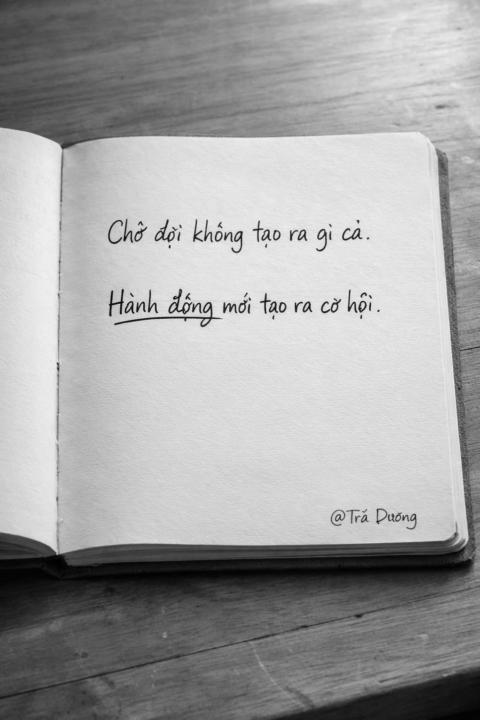 Chỗ đợi khống tạo ra gì cả.
Hành động mới tạo ra cờ hội.
@Trá Dương